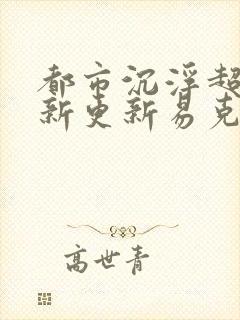 都市沉浮超
新更新易克
高世青